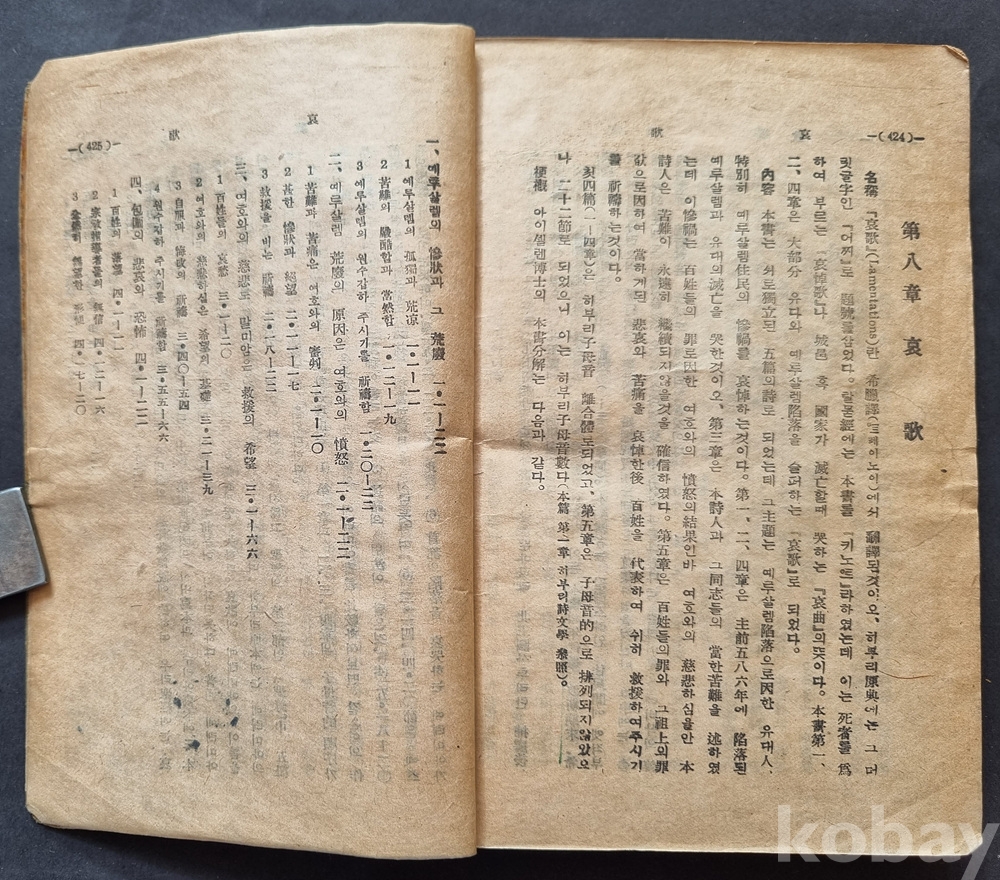 —(424)—
哀
歌
第八章 哀 歌
名稱 『哀歌』(Lamentations)란 希臘譯(뜨레이노이)에서 飜譯된것이오, 히부리原典에는 그 머
릿글字인 『어찌』로 題號를삼았다. 탈몯經에는 本書를 『키노트』라하였는데 이는 死者를 爲
하여 부르는 『哀悼歌』나 城邑 혹 國家가 滅亡할때 哭하는 『哀曲』의뜻이다. 本書第一、
二、四章은 大部分 유다와 예루살렘陷落을 슬퍼하는 『哀歌』로 되었다。
內容 本書는 서로獨立된 五篇의詩로 되었는데 그主題는 예루살렘陷落으로因한 유대人、
特別히 예루살렘住民의 慘禍를 哀悼하는것이다。第一、二、四章은 主前五八六年에 陷落된
예루살렘과 유대의滅亡을 哭한것이오、第三章은 本詩人과 그同志들의 當한苦難을 述하였
는데 이慘禍는 百姓들의 罪로因한 여호와의 憤怒의結果인바 여호와의 慈悲하심을안 本
詩人은 苦難이 永遠히 繼續되지않을것을 確信하였다。第五章은 百姓들의罪와 그祖上의罪
값으로因하여 當하게된 悲哀와 苦痛을 哀悼한後 百姓을 代表하여 쉬히 救援하여주시기
를 祈禱하는것이다。
첫四篇(一—四章)은 히부리子母音 離合體로되었고、第五章은 子母音的으로 排列되지않았으
나 二十二節로 되었으니 이는 히부리子母音數다(本篇 第一章 히부리詩文學 參照)。
梗槪 아이셀렌博士의 本書分解는 다음과 같다。
哀
歌
—(425)—
一、예루살렘의 慘狀과 그 荒廢 一·一—二二
1 예루살렘의 孤獨과 荒凉 一·一—一一
2 苦難의 嚴酷함과 當然함 一·一二—一九
3 예루살렘의 원수갚아 주시기를 祈禱함 一·二〇—二二
二、예루살렘 荒廢의 原因은 여호와의 憤怒 二·一—二二
1 苦難과 苦痛은 여호와의 審判 二·一—一〇
2 甚한 慘狀과 絕望 二·一一—一七
3 救援을 비는 祈禱 二·一八—二二
三、여호와의 慈悲로 말미암은 救援의 希望 三·一—六六
1 百姓들의 哀愁 三·一—二〇
2 여호와의 慈悲하심은 希望의 基礎 三·二一—三九
3 自服과 悔改의 祈禱 三·四〇—五四
4 원수갚아 주시기를 祈禱함 三·五五—六六
四、包圍의 悲哀와 恐怖 四·一—二二
1 百姓의 落望 四·一—一一
2 宗敎指導者들의 無信 四·一二—一六
3 無望한 四·一七—二〇